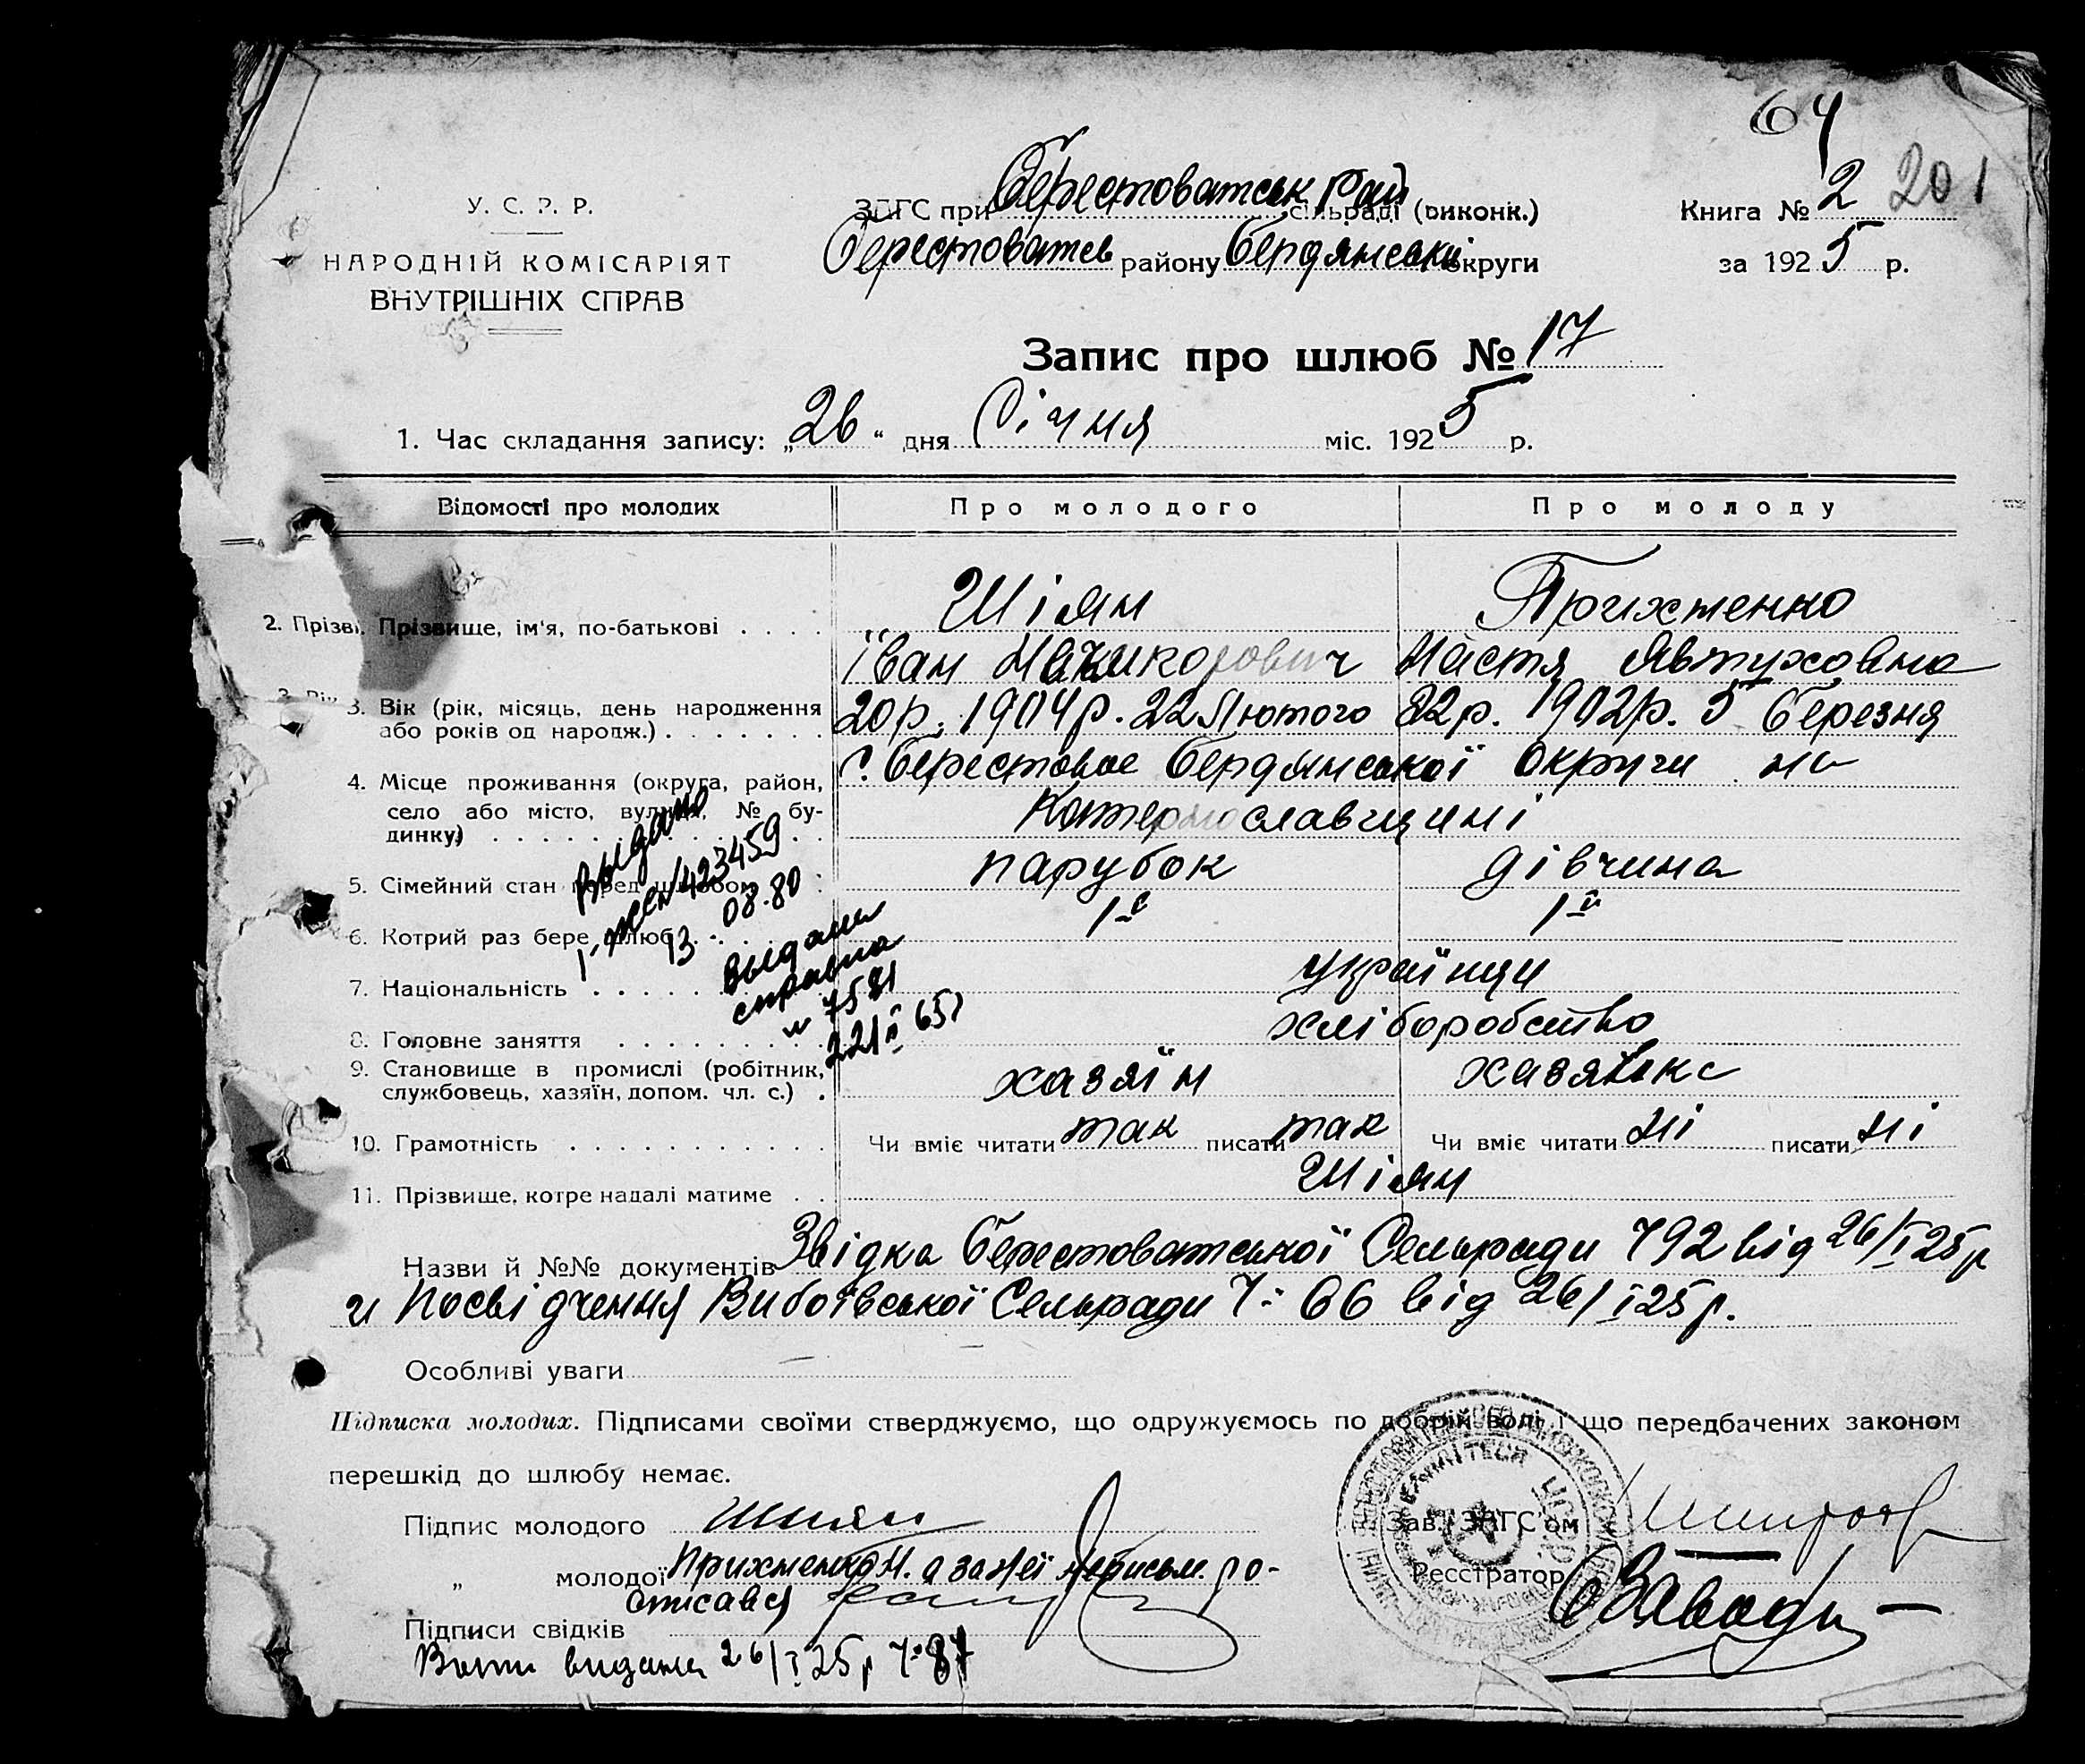 64
У. С. Р. Р.
НАРОДНІЙ КОМІСАРІЯТ
ВНУТРІШНІХ СПРАВ
ЗАГС при Берестоватськ Рай сільраді (виконк.)
Берестоватськ району Бердянської округи
Книга № 2 201
за 1925 р.
Запис про шлюб № 17
1. Час складання запису: „26“ дня Січня міс. 1925 р.
Відомості про молодих Про молодого Про молоду
2. Прізви. Прізвище, ім'я, по-батькові . . . . Шіян Прихтенко
Іван Настя Явтуховна
3. Вік (рік, місяць, день народження 20р. 1904р. 22 Лютого 22р. 1902р. 5 березня
або років од народж.) . . . . . . .
4. Місце проживання (округа, район, с. Берестовое Бердянської округи на
село або місто, вулиця, № бу- Катеринославщині
динку) . . . . . . . . . . .
5. Сімейний стан перед шлюбом . парубок дівчина
6. Котрий раз бере шлюб . . . 1й 1й
7. Національність . . . . . . українци
8. Головне заняття . . . . . . . . хліборобство
9. Становище в промислі (робітник, хазяїн хазяйка
службовець, хазяїн, допом. чл. с.) .
10. Грамотність . . . . . . . . . . . Чи вміє читати так писати так Чи вміє читати ні писати ні
11. Прізвище, котре надалі матиме . . Шіян
Выдано
423459
13 08.80
Выдана
справка
№ 7581
22/II 65г
Назви й №№ документів Звідка Берестоватської Сельради Ч 92 від 26/I 25р
и Посвідчення Сельради Ч: 66 від 26/I 25р.
Особливі уваги —
Підписка молодих. Підписами своїми стверджуємо, що одружуємось по добрій волі і що передбачених законом
перешкід до шлюбу немає.
Підпис молодого Шиян
„ молодої Прихтенко Н. а за неї неписьм. ро-
списався
Підписи свідків
Зав. ЗАГС'ом
Реєстратор
видана 26/I 25р Ч: 87